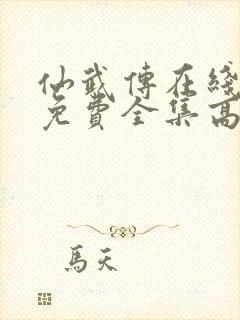 仙武傳在綫
免費全集高
馬天